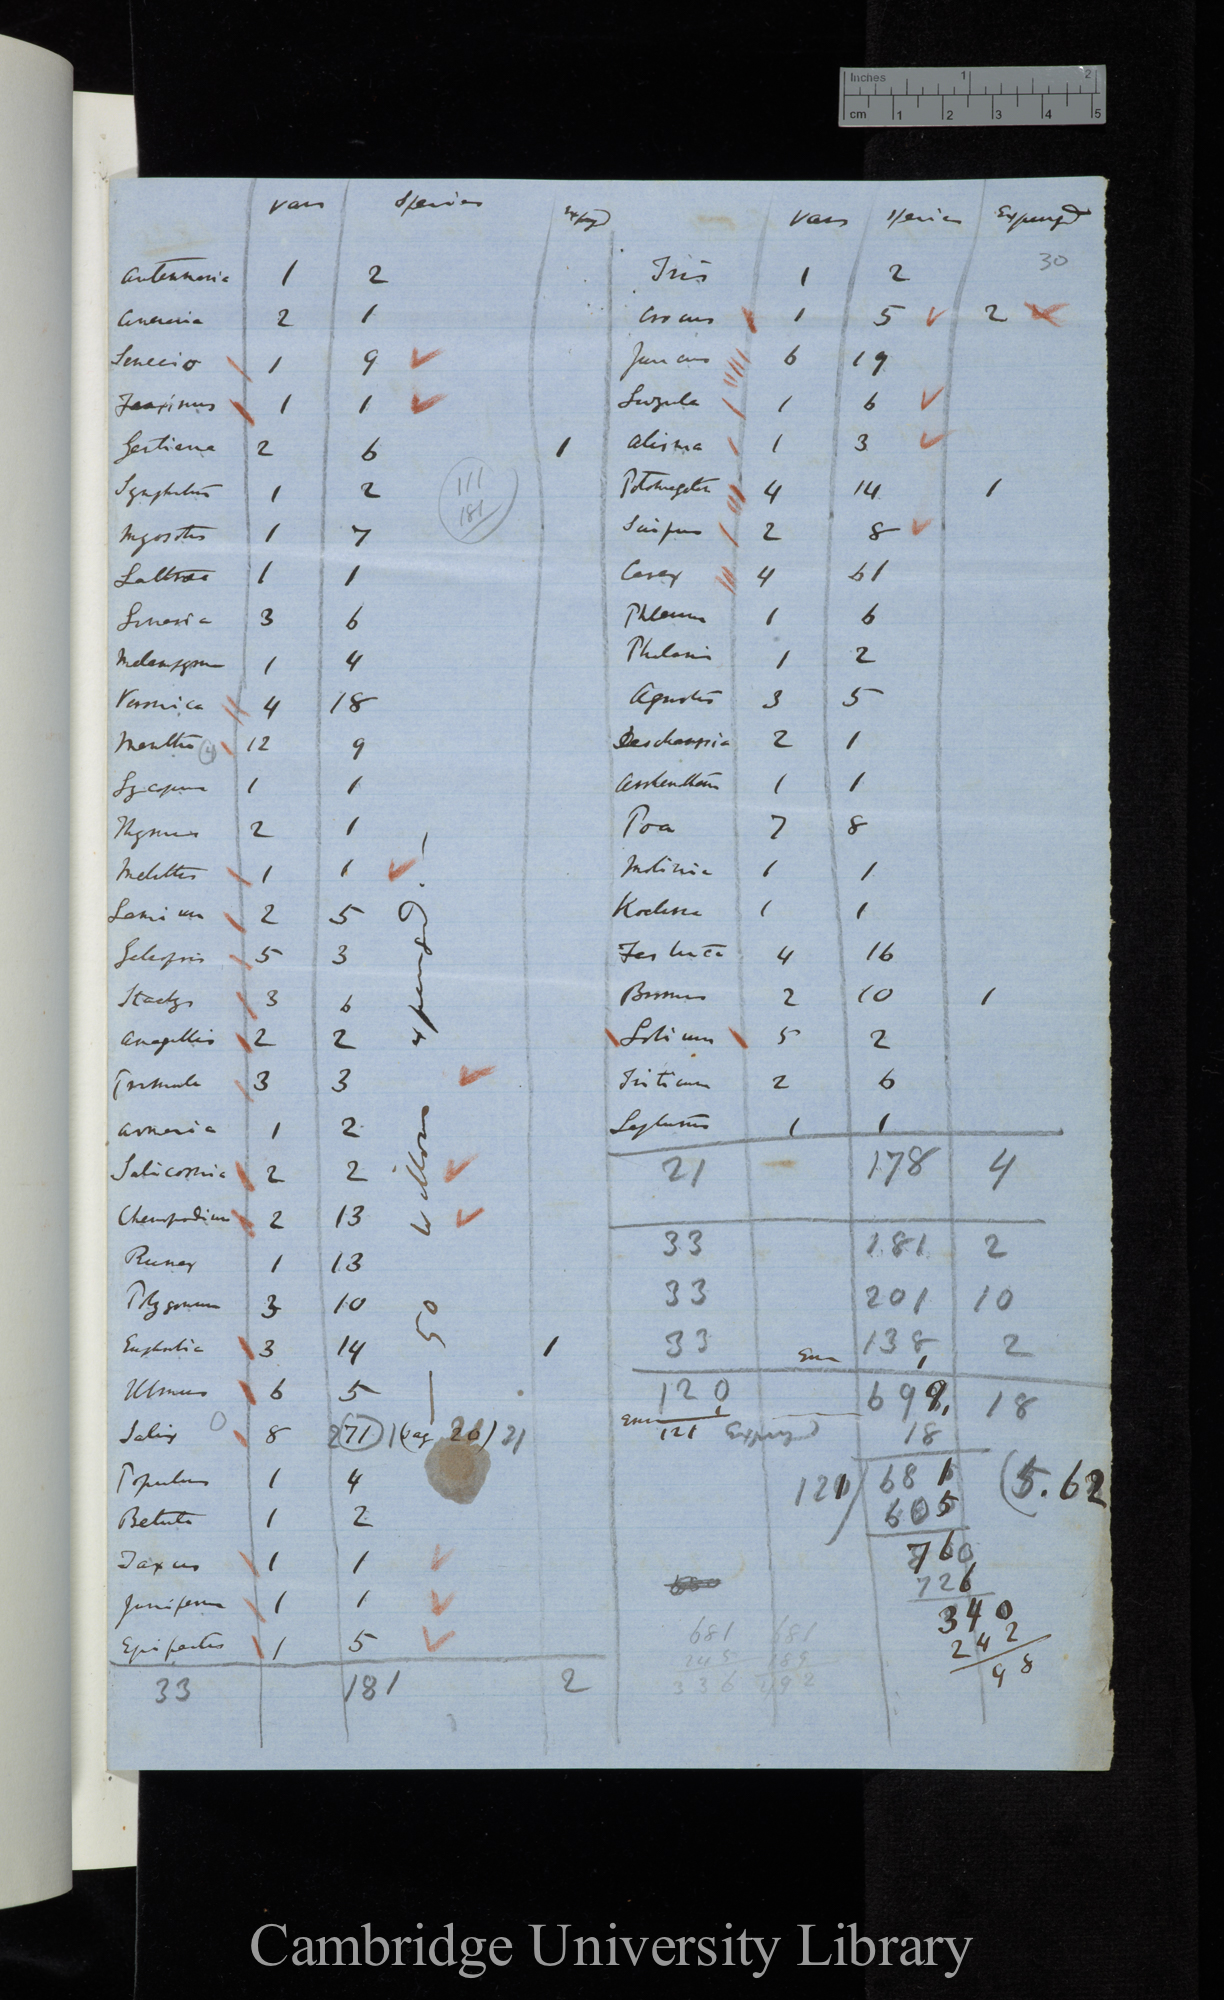 Inches 1 2
cm 1 2 3 4 5
Vars Species Expgd
Antennaria 1 2
Cineraria 2 1
Senecio 1 9
Fraxinus 1 1
Gentiana 2 6 1
Symphytum 1 2
111
181
Myosotis 1 7
Lathraea 1 1
Linaria 3 6
Melampyrum 1 4
Veronica 4 18
Mentha (4) 12 9
Lycopus 1 1
Thymus 2 1
Melittis 1 1
Lamium 2 5
Galeopsis 5 3
Stachys 3 6
Anagallis 2 2
Primula 3 3
Armeria 1 2
Salicornia 2 2
Chenopodium 2 13
Rumex 1 13
Polygonum 3 10
Euphorbia 3 14 1
Ulmus 6 5
Salix 8 2(71) 1(vag 26) 21
— 50 Willows expunged. —
Populus 1 4
Betula 1 2
Taxus 1 1
Juniperus 1 1
Epipactis 1 5
33 181 2
Vars Species Expunged
30
Iris 1 2
Crocus 1 5 2
Juncus 6 19
Luzula 1 6
Alisma 1 3
Potamogeton 4 14 1
Scirpus 2 8
Carex 4 61
Phleum 1 6
Phalaris 1 2
Agrostis 3 5
Deschampsia 2 1
Arrhenatherum 1 1
Poa 7 8
Molinia 1 1
Koeleria 1 1
Festuca 4 16
Bromus 2 10 1
Lolium 5 2
Triticum 2 6
Lepturus 1 1
21 178 4
33 181 2
33 201 10
33 138 2
Err 1
120 699 18
Err 1
121 Expunged 18
121) 681 (5.62
605
760
726
340
242
98
681 681
245 189
336 492
Cambridge University Library